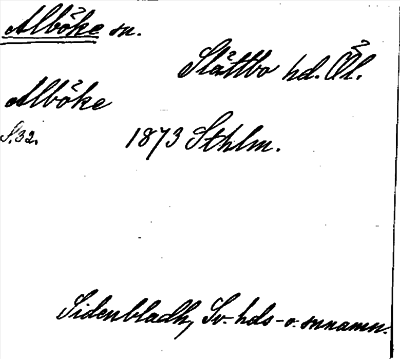 Alböke sn.
Slättbo hd. Öl.
Alböke
S. 32. 1873 Sthlm.
Sidenbladh, Sv. hds- o. snnamn.